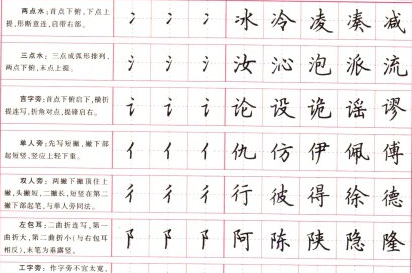 两点水：首点下俯，下点上提，形断意连，启带右部。
冫 冫 冫 冰 冷 凌 凑 减
三点水：三点成弧形排列，两点下俯，末点上提。
氵 氵 氵 汝 沁 泡 派 流
言字旁：首点下俯启下，横折提连写，折角对点，提锋启右。
讠 讠 讠 论 设 诡 谣 谬
单人旁：先写短撇，撇下部起短竖，竖应上轻下重。
亻 亻 亻 仇 仿 伊 佩 傅
双人旁：两撇下撇顶住上撇，头撇短，二撇长，短竖在第二撇下部起笔，与单人旁同法。
彳 彳 彳 行 彼 得 徐 德
左包耳：二曲折连写，第一曲折大，第二曲折小(与右包耳相反)，末笔为垂露竖。
阝 阝 阝 阿 陈 陕 隐 隆
工字旁：作字旁不宜太宽，